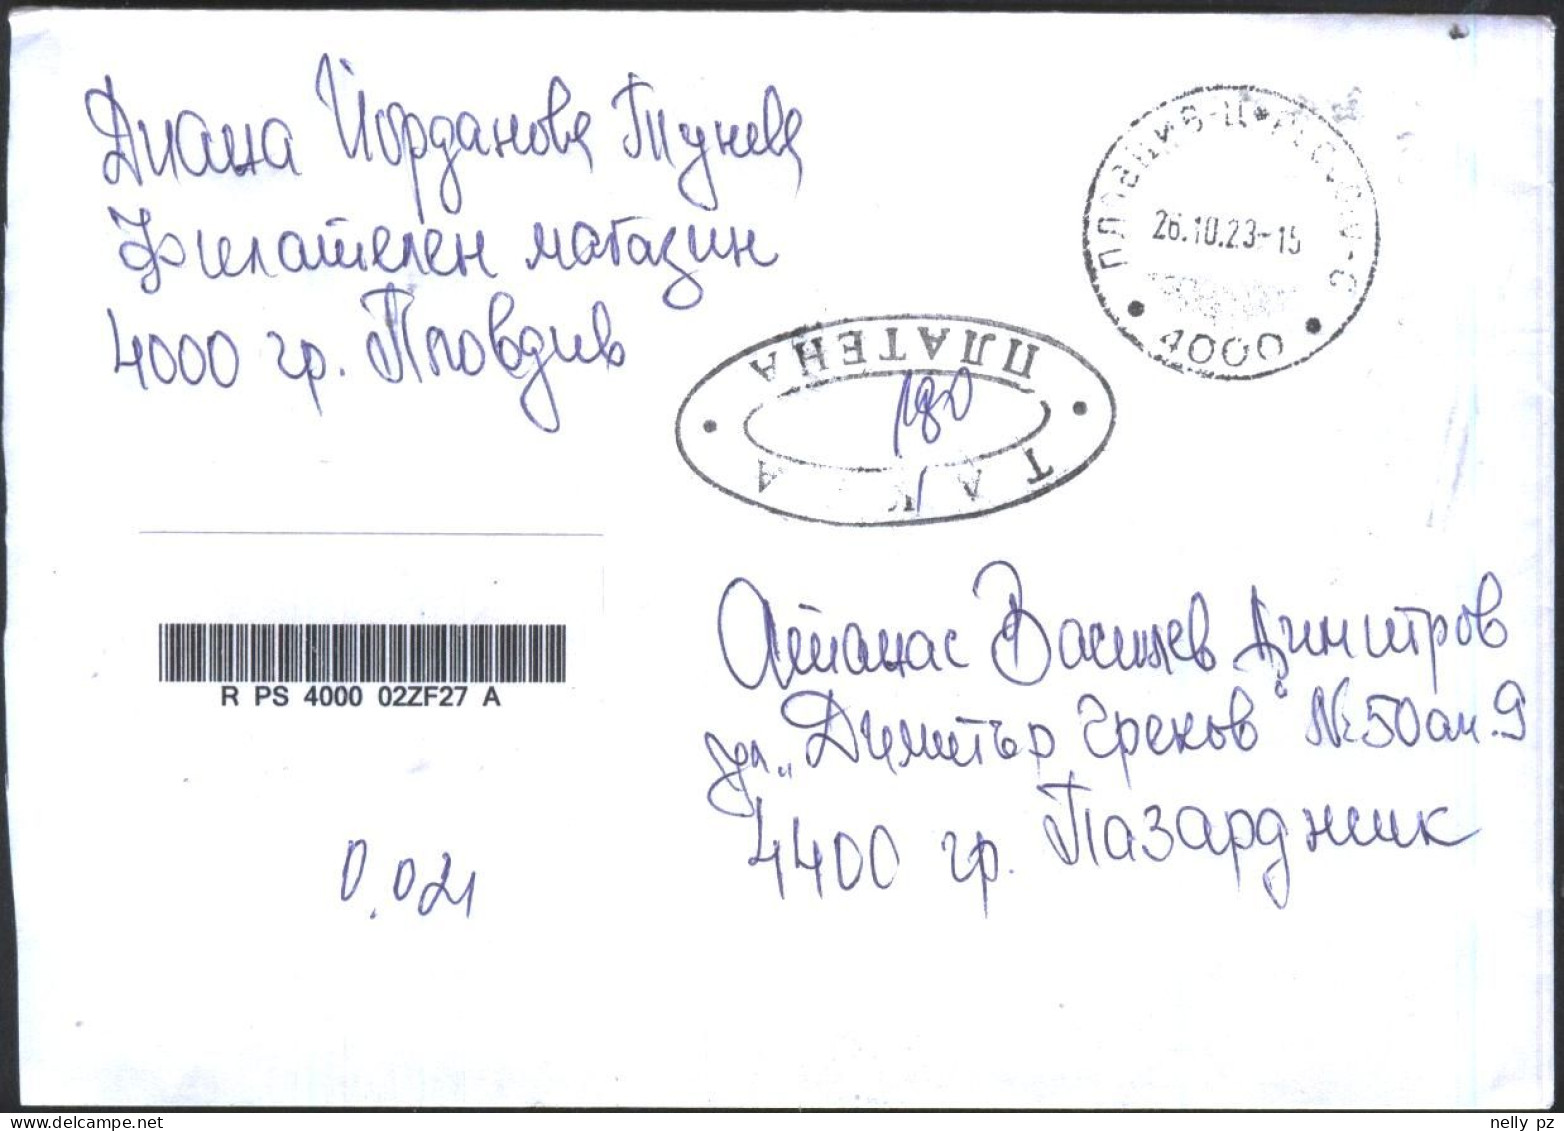 Диана Йорданова Тунева
Филателен магазин
4000 гр. Пловдив
ПЛОВДИВ-Ц
26.10.23-15
4000
ТАКСА
ПЛАТЕНА
180
R PS 4000 02ZF27 A
0.021
Атанас Василев Димитров
ул. „Димитър Греков“ № 50 ап. 9
4400 гр. Пазарджик
nelly pz